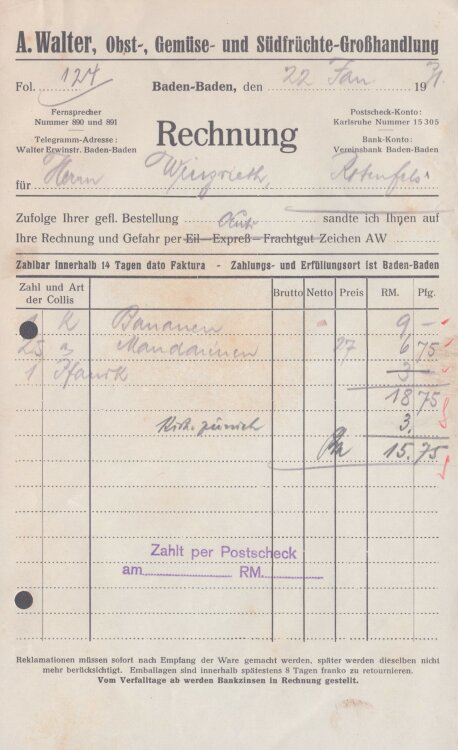 A. Walter, Obst-, Gemüse- und Südfrüchte-Großhandlung
Fol. 124 Baden-Baden, den 22 Jan. 1931.
Fernsprecher
Nummer 890 und 891
Telegramm-Adresse:
Walter Erwinstr. Baden-Baden
Rechnung
Postscheck-Konto:
Karlsruhe Nummer 15 305
Bank-Konto:
Vereinsbank Baden-Baden
für Herrn Rotenfels
Zufolge Ihrer gefl. Bestellung Auto sandte ich Ihnen auf
Ihre Rechnung und Gefahr per Eil – Expreß – Frachtgut Zeichen AW
Zahlbar innerhalb 14 Tagen dato Faktura - Zahlungs- und Erfüllungsort ist Baden-Baden
Zahl und Art der Collis Brutto Netto Preis RM. Pfg.
K Bananen 9 –
25 Mandarinen 27 6 75
1 Pfand 3 –
18 75
Kist. zurück 3.
15.75
Zahlt per Postscheck
am RM.
Reklamationen müssen sofort nach Empfang der Ware gemacht werden, später werden dieselben nicht
mehr berücksichtigt. Emballagen sind innerhalb spätestens 8 Tagen franko zu retournieren.
Vom Verfalltage ab werden Bankzinsen in Rechnung gestellt.